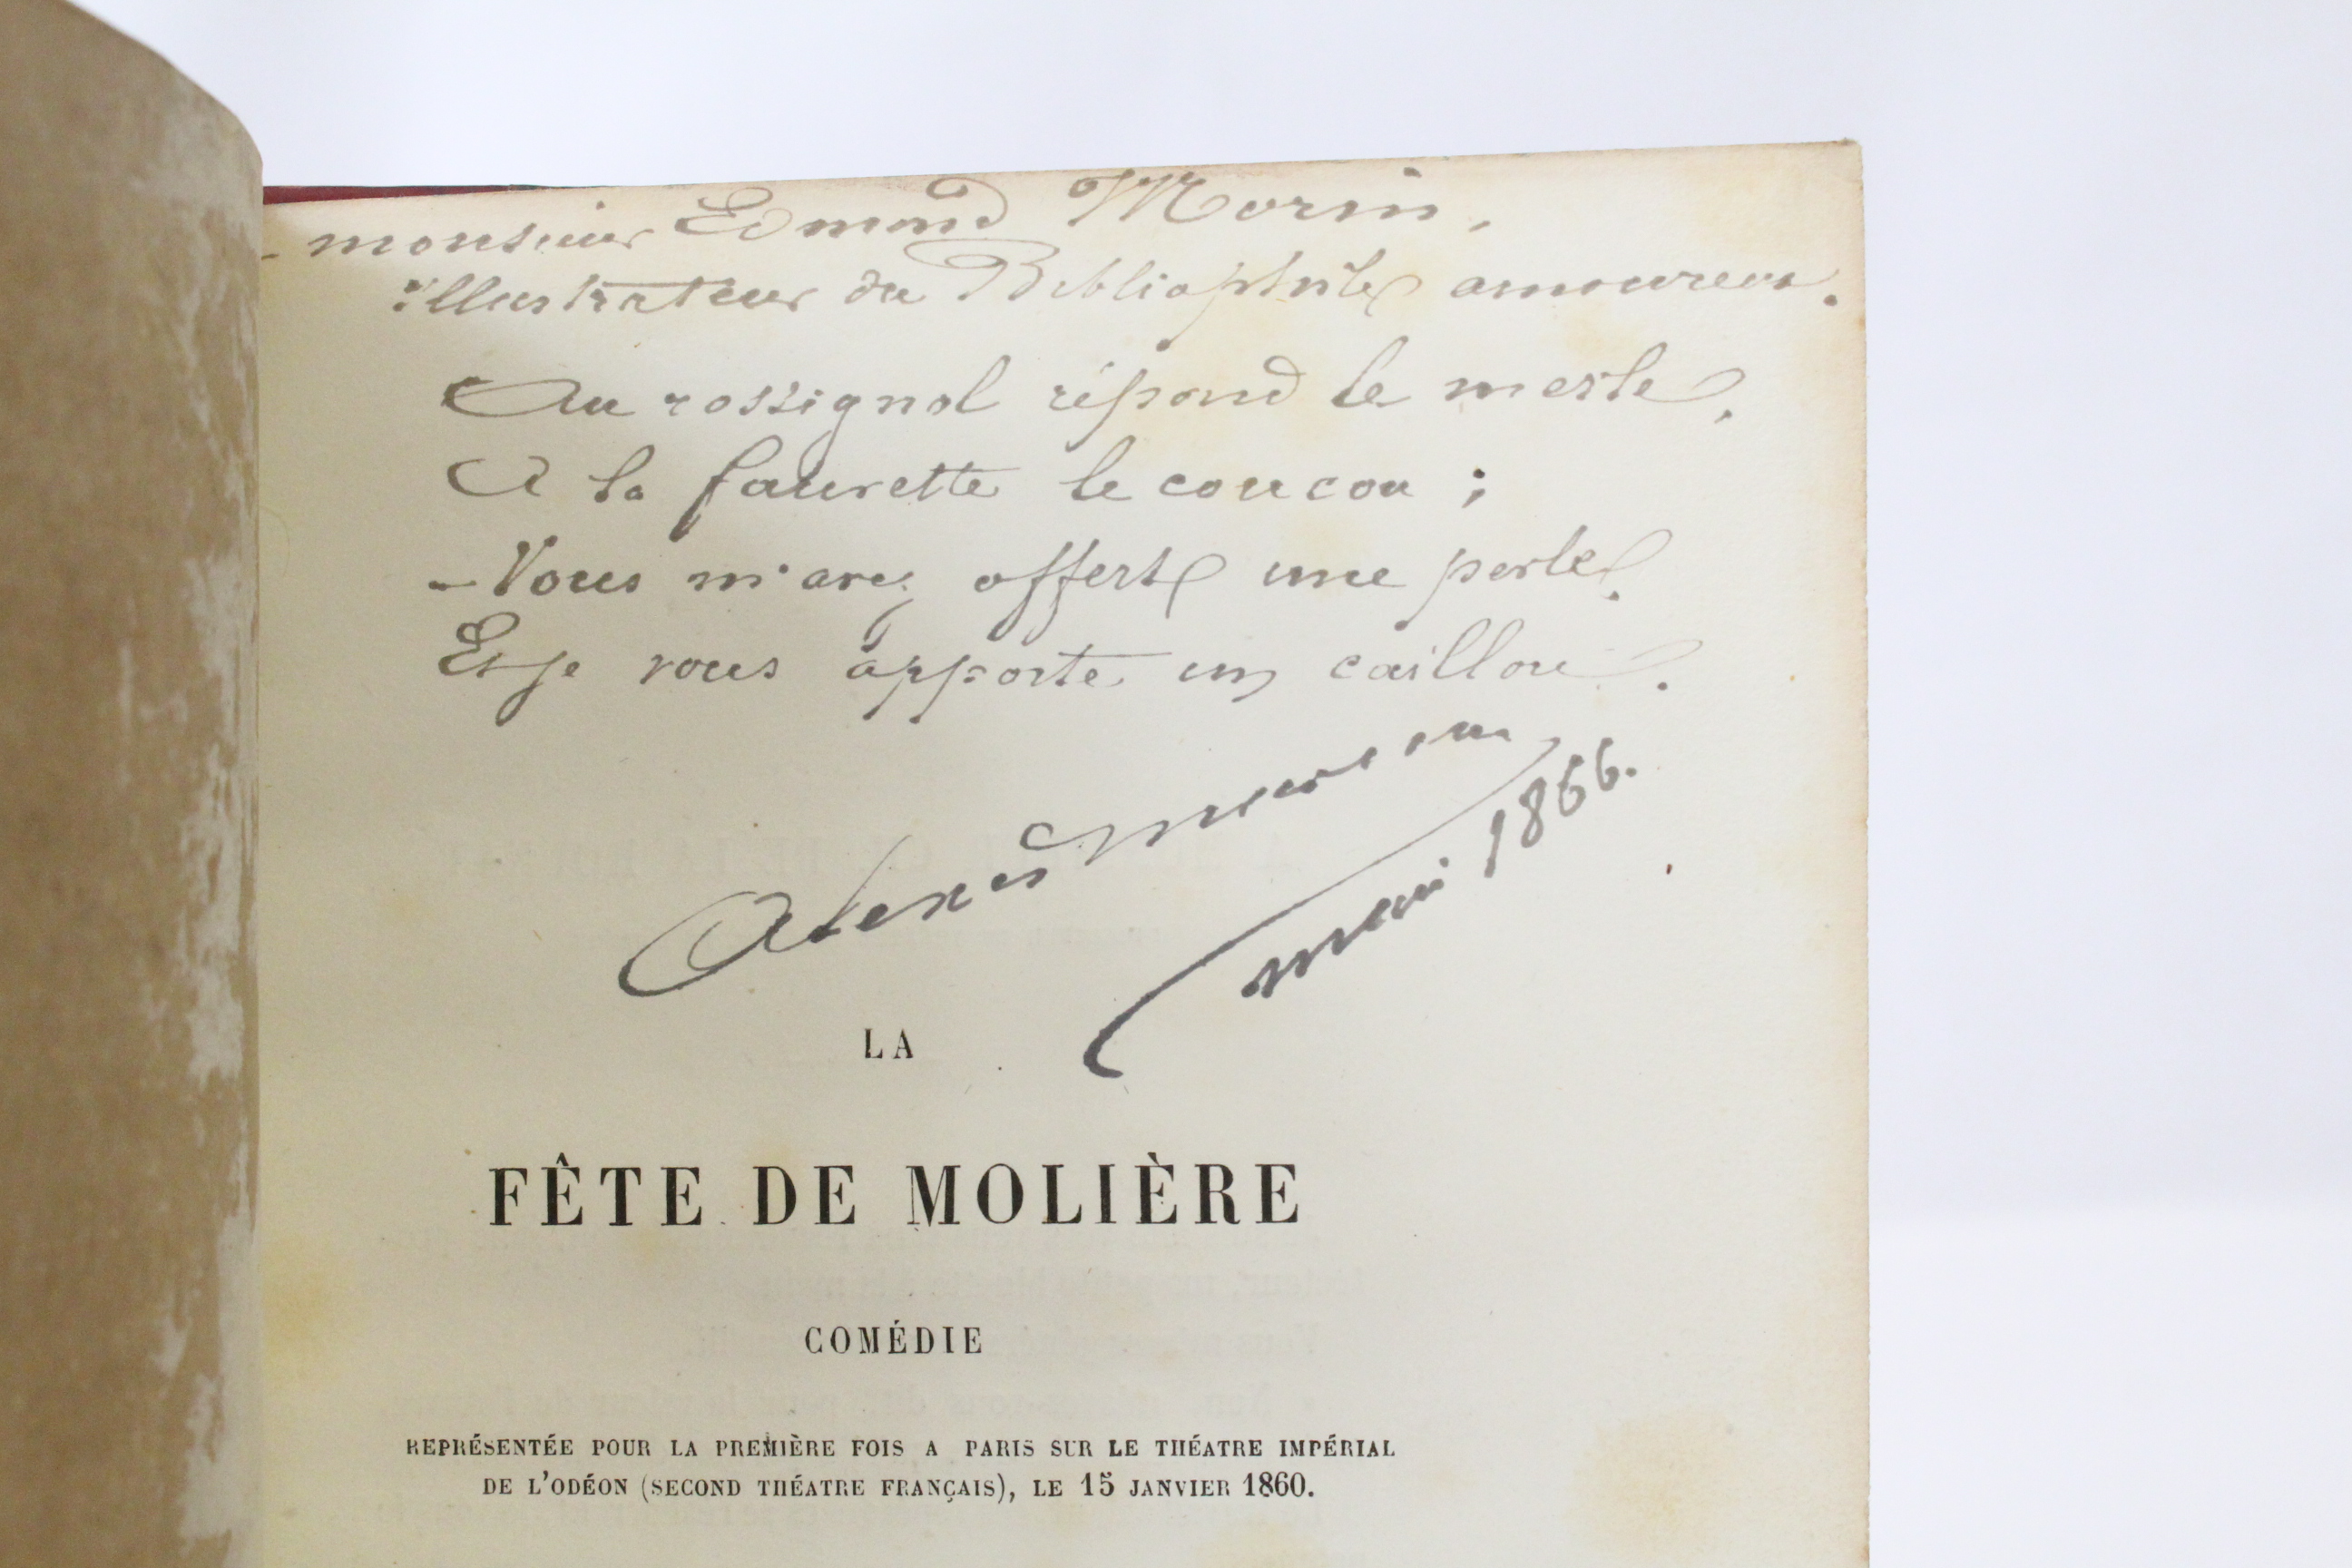 - monsieur Edmond Morin,
illustrateur du Bibliophile amoureux.
Au rossignol répond le merle,
A la fauvette le coucou ;
- Vous m'avez offert une perle,
Et je vous apporte un caillou.
mai 1866.
LA
FÊTE DE MOLIÈRE
COMÉDIE
REPRÉSENTÉE POUR LA PREMIÈRE FOIS A PARIS SUR LE THÉATRE IMPÉRIAL
DE L'ODÉON (SECOND THÉATRE FRANÇAIS), LE 15 JANVIER 1860.